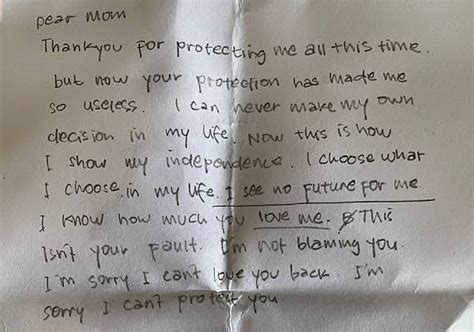 Dear Mom
Thankyou for protecting me all this time.
but now your protection has made me
so useless. I can never make my own
decision in my life. Now this is how
I show my independence. I choose what
I choose in my life. I see no future for me
I know how much you love me. This
Isn't your fault. I'm not blaming you.
I'm sorry I cant love you back. I'm
sorry I can't protect you